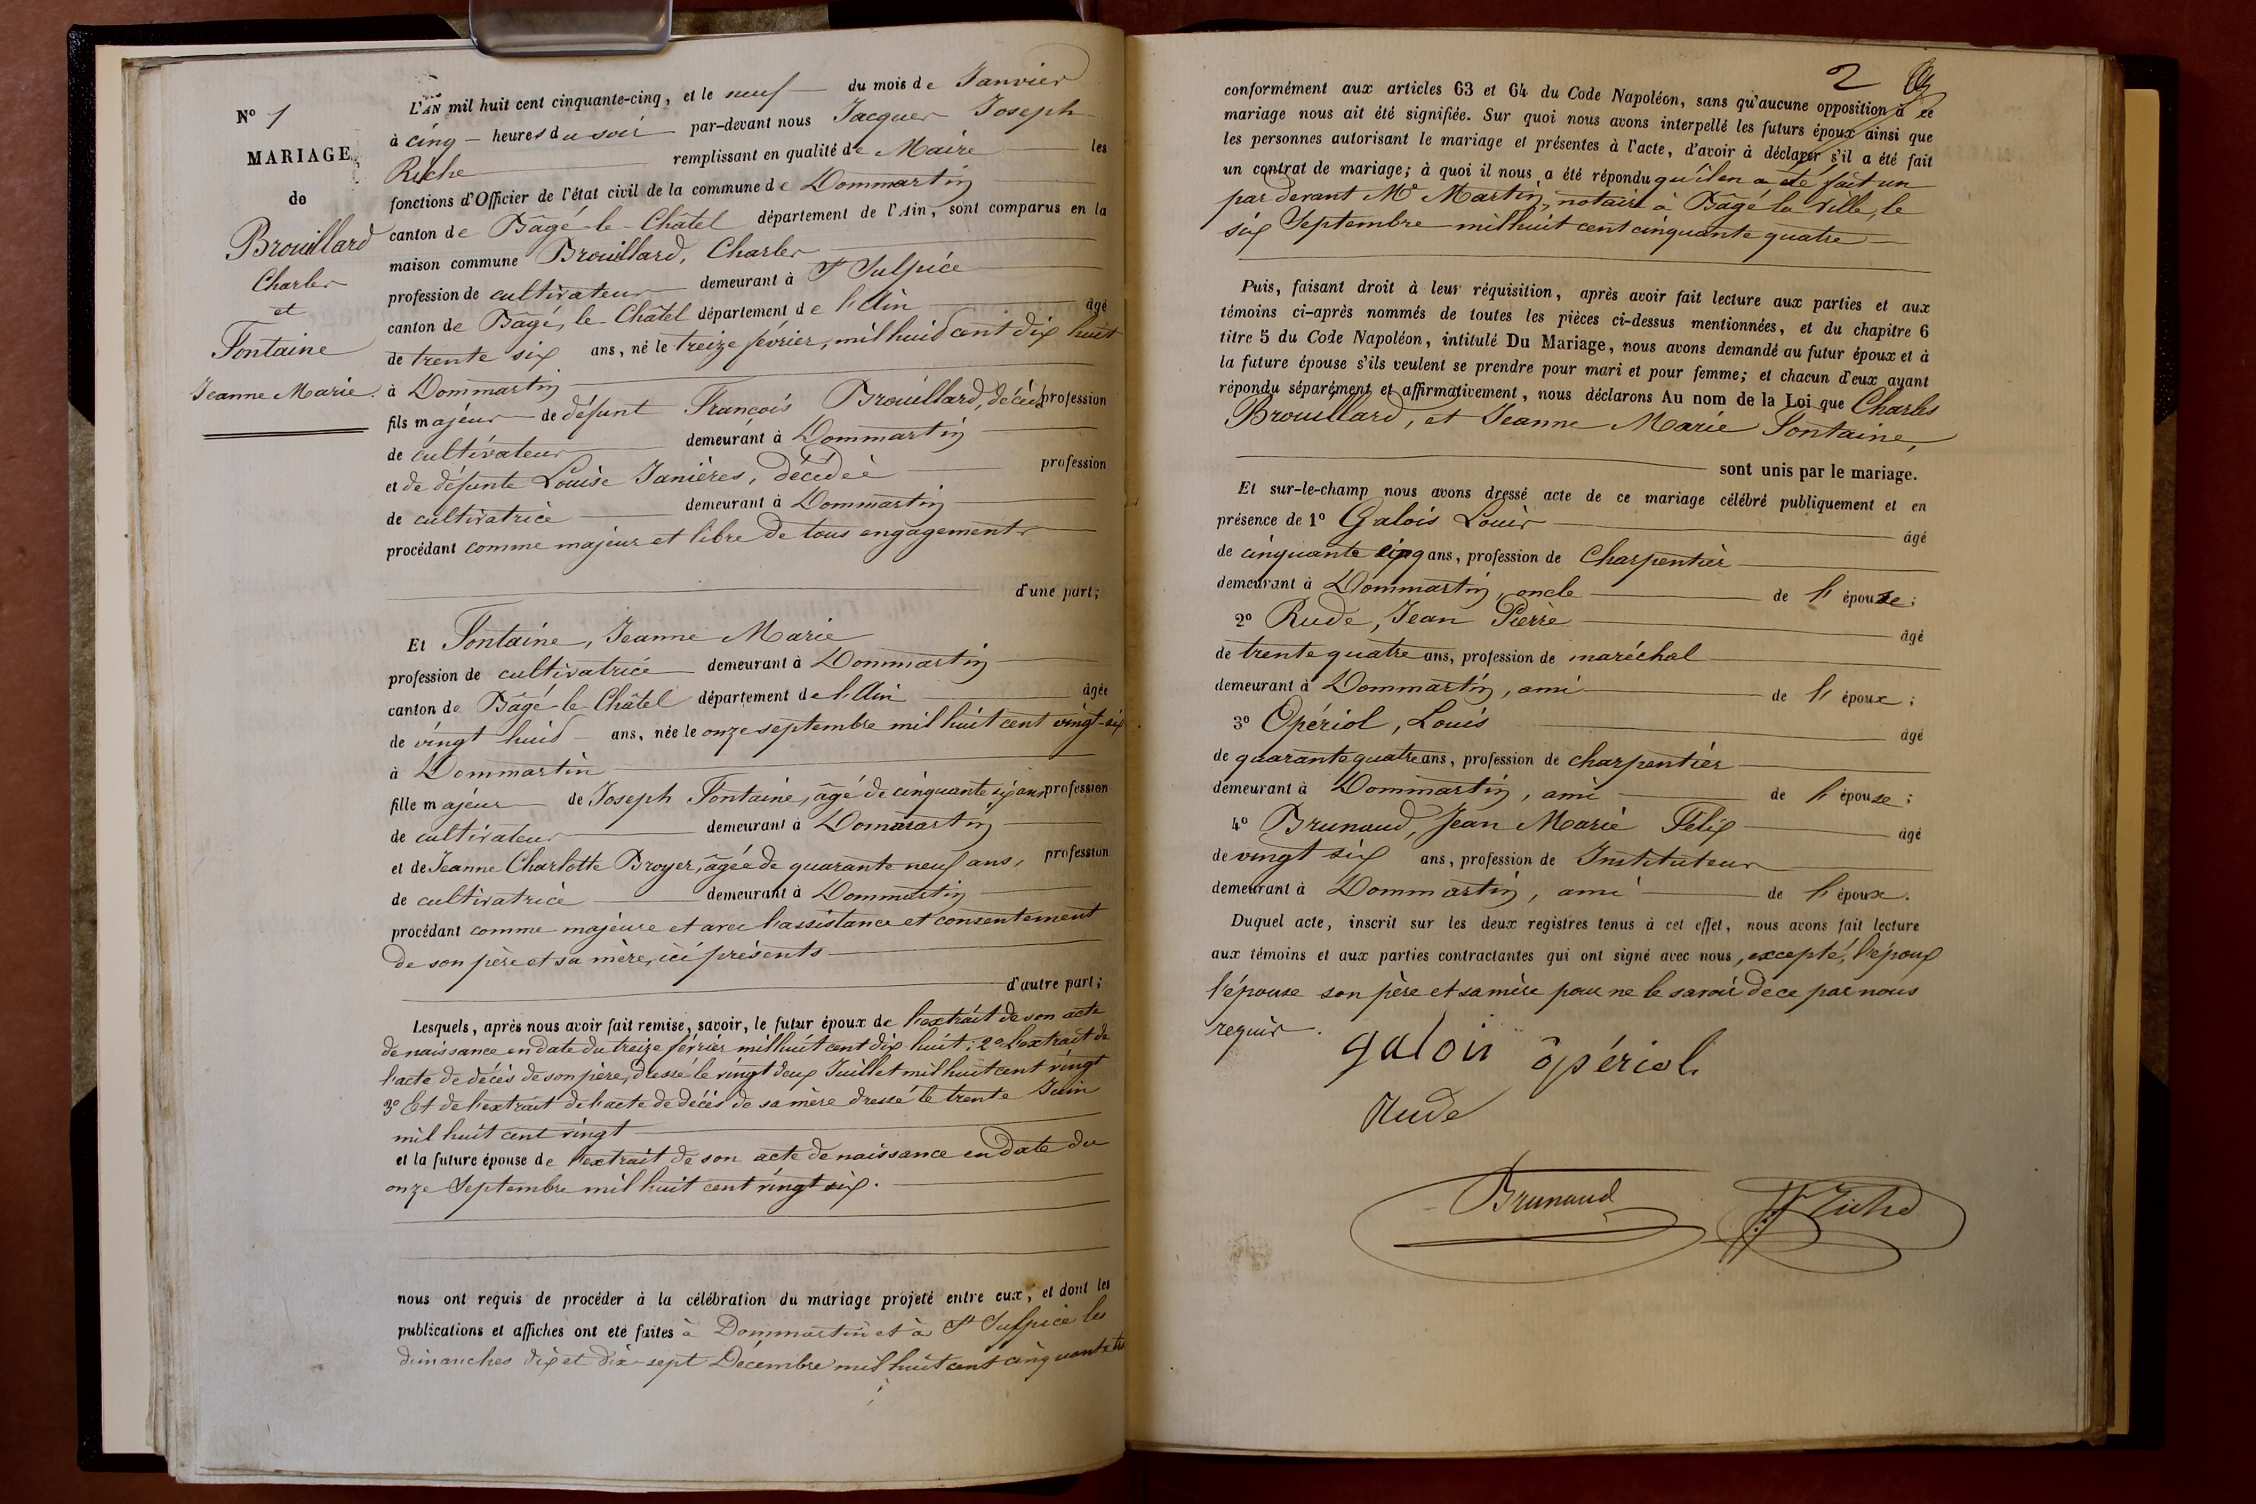 N° 1
MARIAGE
de
Brouillard
Charles
et
Fontaine
Jeanne Marie.
L'AN mil huit cent cinquante-cinq, et le neuf du mois de Janvier
à cinq heures du soir par-devant nous Jacques Joseph
Riche remplissant en qualité de Maire les
fonctions d'Officier de l'état civil de la commune de Dommartin
canton de Bâgé-le-Châtel département de l'Ain, sont comparus en la
maison commune Brouillard, Charles
profession de cultivateur demeurant à St Sulpice
canton de Bâgé-le-Châtel département de l'Ain âgé
de trente six ans, né le treize février, mil huit cent dix huit
à Dommartin
fils majeur de défunt François Brouillard, décédé profession
de cultivateur demeurant à Dommartin
et de défunte Louise Janières, décédée profession
de cultivatrice demeurant à Dommartin
procédant comme majeur et libre de tous engagements
d'une part;
Et Fontaine, Jeanne Marie
profession de cultivatrice demeurant à Dommartin
canton de Bâgé-le-Châtel département de l'Ain âgée
de vingt huit ans, née le onze septembre mil huit cent vingt-six
à Dommartin
fille majeur de Joseph Fontaine, âgé de cinquante six ans, profession
de cultivateur demeurant à Dommartin
et de Jeanne Charlotte Broyer, âgée de quarante neuf ans, profession
de cultivatrice demeurant à Dommartin
procédant comme majeure et avec l'assistance et consentement
de son père et sa mère, ici présents
d'autre part;
Lesquels, après nous avoir fait remise, savoir, le futur époux de l'extrait de son acte
de naissance en date du treize février mil huit cent dix huit; 2° l'extrait de
l'acte de décès de son père, dressé le vingt deux Juillet mil huit cent vingt
3° Et de l'extrait de l'acte de décès de sa mère dressé le trente Juin
mil huit cent vingt
et la future épouse de l'extrait de son acte de naissance en date du
onze Septembre mil huit cent vingt six.
nous ont requis de procéder à la célébration du mariage projeté entre eux, et dont les
publications et affiches ont été faites à Dommartin et à St Sulpice les
dimanches dix et dix-sept Décembre mil huit cent cinquante
2
conformément aux articles 63 et 64 du Code Napoléon, sans qu'aucune opposition à ce
mariage nous ait été signifiée. Sur quoi nous avons interpellé les futurs époux ainsi que
les personnes autorisant le mariage et présentes à l'acte, d'avoir à déclarer s'il a été fait
un contrat de mariage; à quoi il nous a été répondu qu'il en a été fait un
par devant Me Martin, notaire à Bâgé la Ville, le
six Septembre mil huit cent cinquante quatre
Puis, faisant droit à leur réquisition, après avoir fait lecture aux parties et aux
témoins ci-après nommés de toutes les pièces ci-dessus mentionnées, et du chapitre 6
titre 5 du Code Napoléon, intitulé Du Mariage, nous avons demandé au futur époux et à
la future épouse s'ils veulent se prendre pour mari et pour femme; et chacun d'eux ayant
répondu séparément et affirmativement, nous déclarons Au nom de la Loi que Charles
Brouillard, et Jeanne Marie Fontaine,
sont unis par le mariage.
Et sur-le-champ nous avons dressé acte de ce mariage célébré publiquement et en
présence de 1° Galois Louis âgé
de cinquante cinq ans, profession de Charpentier
demeurant à Dommartin, oncle de l'épouse;
2° Rude, Jean Pierre âgé
de trente quatre ans, profession de maréchal
demeurant à Dommartin, ami de l'époux;
3° Opériol, Louis âgé
de quarante quatre ans, profession de charpentier
demeurant à Dommartin, ami de l'épouse;
4° Brunaud, Jean Marie Félix âgé
de vingt six ans, profession de Instituteur
demeurant à Dommartin, ami de l'époux.
Duquel acte, inscrit sur les deux registres tenus à cet effet, nous avons fait lecture
aux témoins et aux parties contractantes qui ont signé avec nous, excepté, l'époux
l'épouse son père et sa mère pour ne le savoir de ce par nous
requis.
galois opériol
Rude
Brunaud Riche